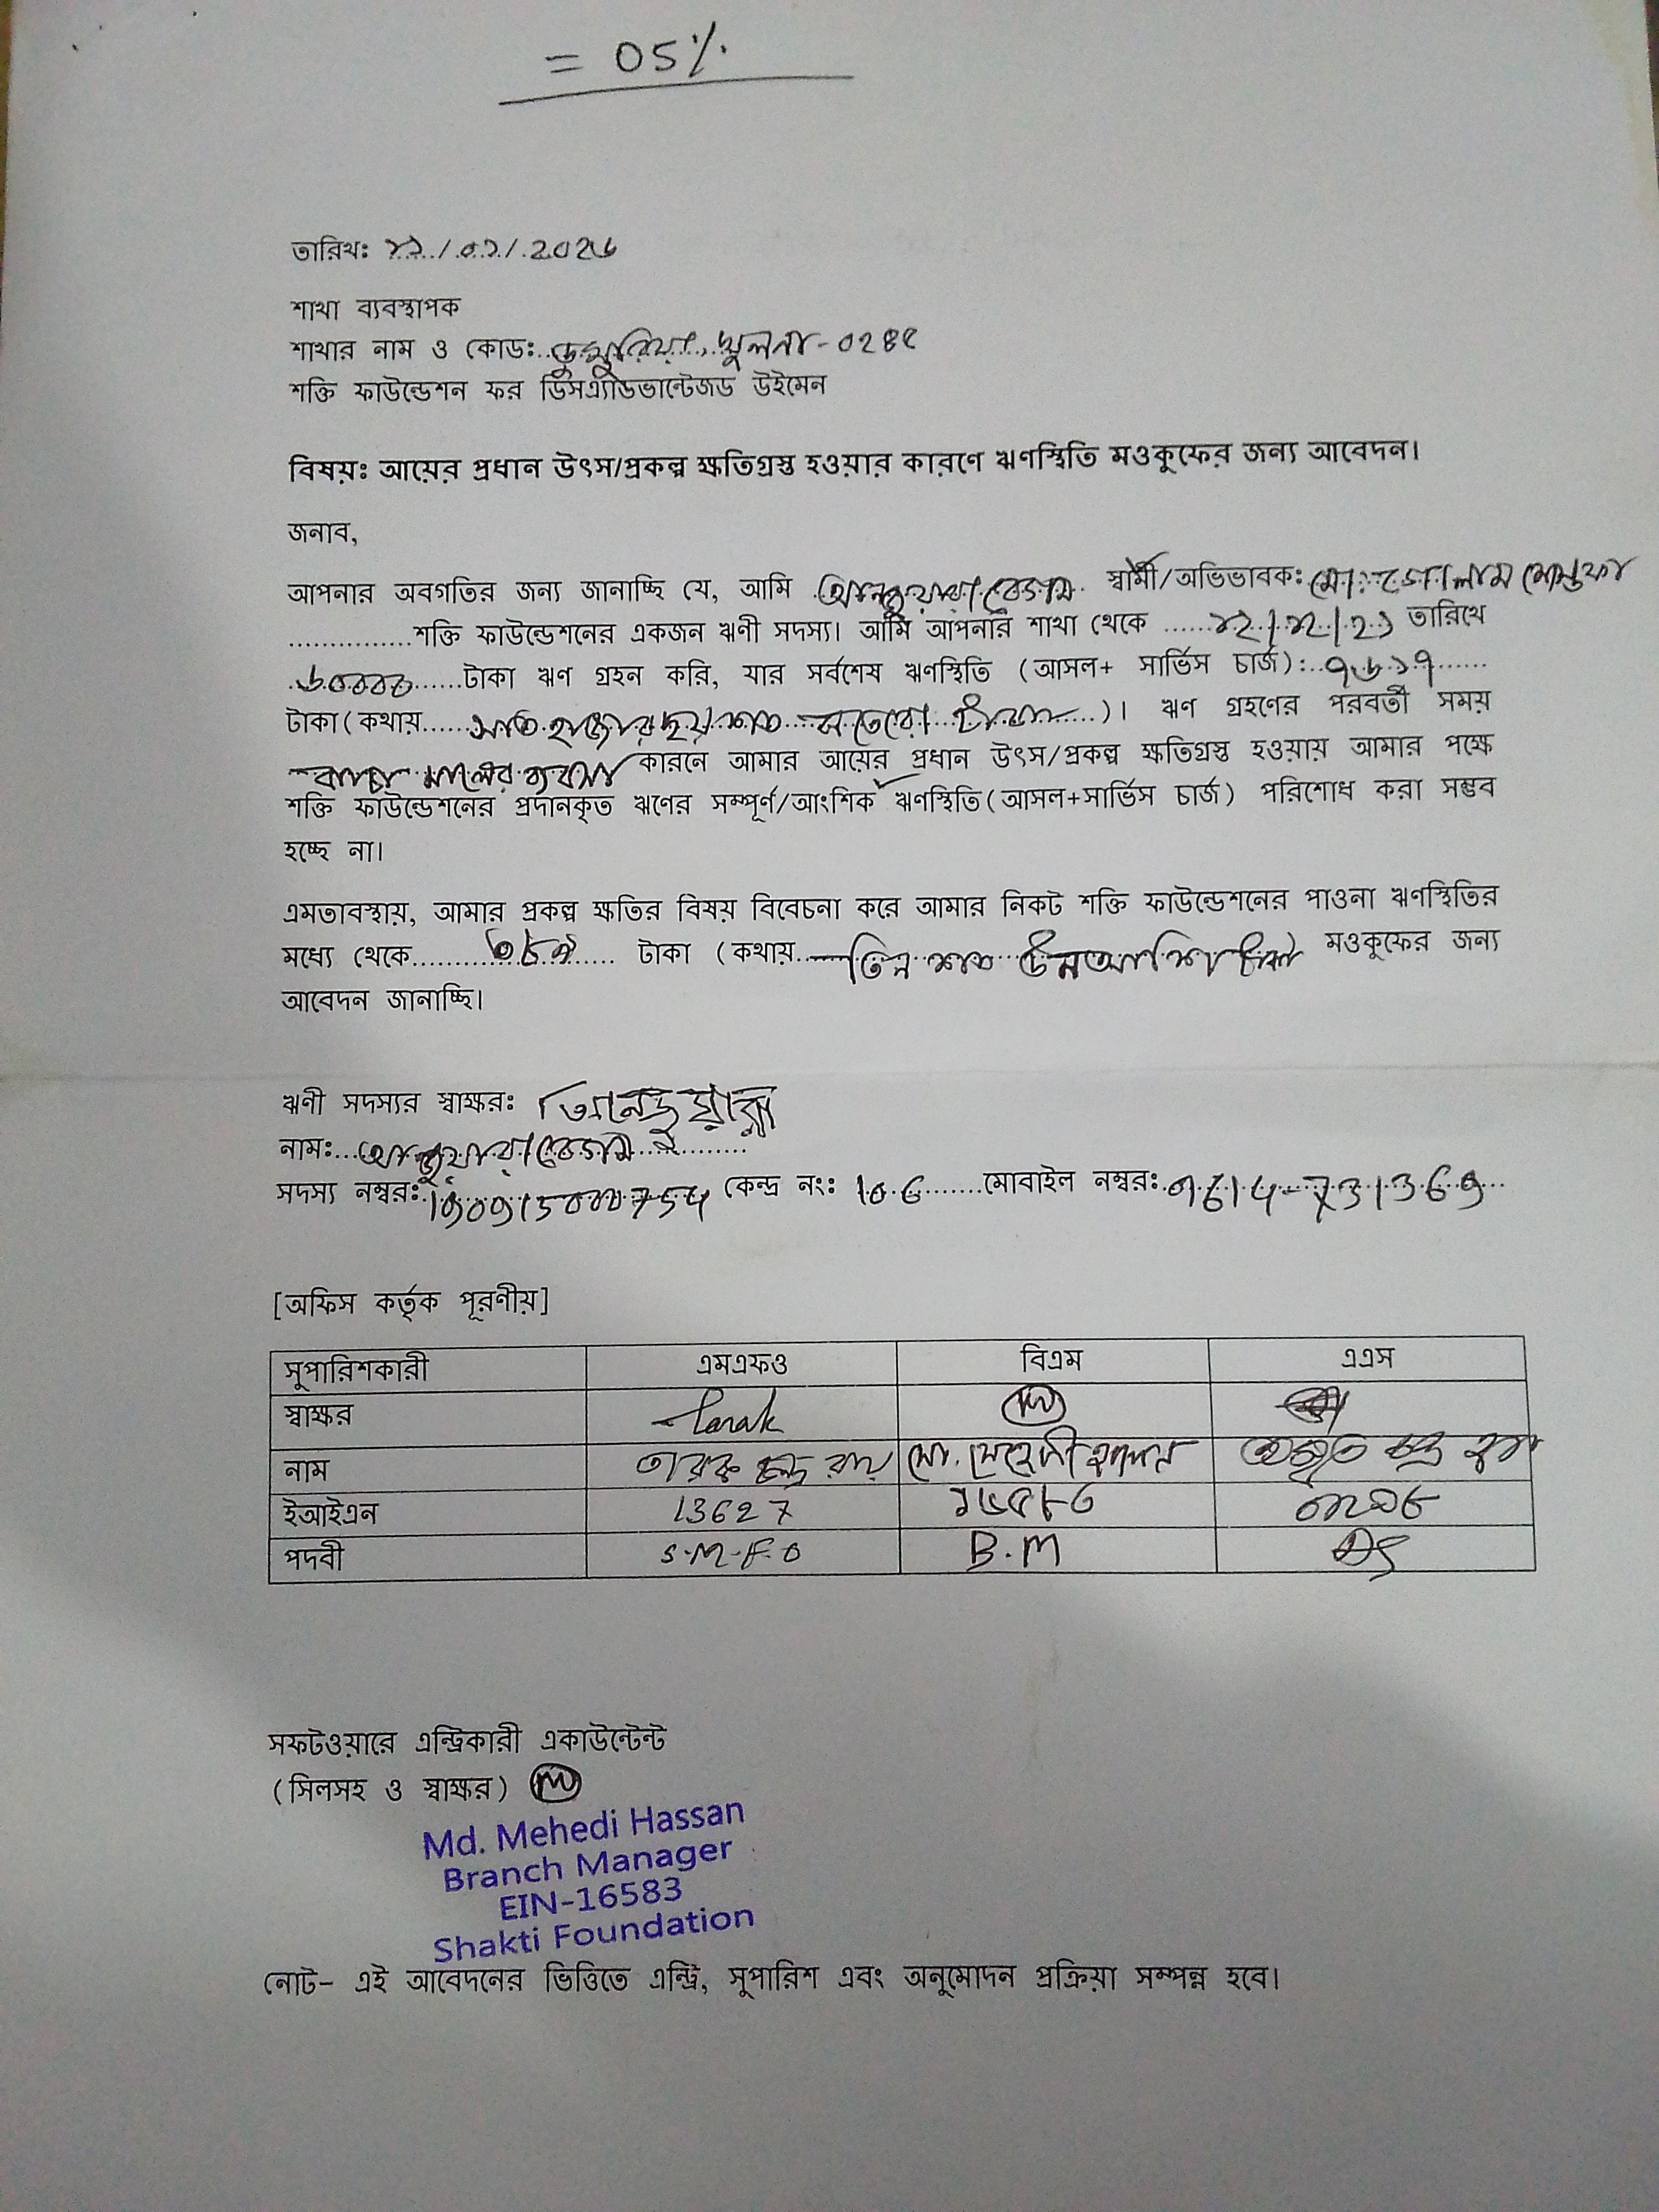 = 05%
তারিখঃ ২১/০১/2026
শাখা ব্যবস্থাপক
শাখার নাম ও কোডঃ ডুমুরিয়া, খুলনা-0২৪৫
শক্তি ফাউন্ডেশন ফর ডিসএ্যাডভান্টেজড উইমেন
বিষয়ঃ আয়ের প্রধান উৎস/প্রকল্প ক্ষতিগ্রস্ত হওয়ার কারণে ঋণস্থিতি মওকুফের জন্য আবেদন।
জনাব,
আপনার অবগতির জন্য জানাচ্ছি যে, আমি বেগম স্বামী/অভিভাবকঃ মোঃ গোলাম মোস্তফা
...............শক্তি ফাউন্ডেশনের একজন ঋণী সদস্য। আমি আপনার শাখা থেকে ...... তারিখে
৬০০০০......টাকা ঋণ গ্রহন করি, যার সর্বশেষ ঋণস্থিতি (আসল+ সার্ভিস চার্জ):..৭৬১৭......
টাকা(কথায়......সাত হাজার ছয় শত সতেরো টাকা......)। ঋণ গ্রহণের পরবর্তী সময়
কাচা মালের ব্যবসা কারনে আমার আয়ের প্রধান উৎস/প্রকল্প ক্ষতিগ্রস্ত হওয়ায় আমার পক্ষে
শক্তি ফাউন্ডেশনের প্রদানকৃত ঋণের সম্পূর্ণ/আংশিক ✓ ঋণস্থিতি(আসল+সার্ভিস চার্জ) পরিশোধ করা সম্ভব
হচ্ছে না।
এমতাবস্থায়, আমার প্রকল্প ক্ষতির বিষয় বিবেচনা করে আমার নিকট শক্তি ফাউন্ডেশনের পাওনা ঋণস্থিতির
মধ্যে থেকে............... টাকা (কথায়......তিন শত উনআশি টাকা মওকুফের জন্য
আবেদন জানাচ্ছি।
ঋণী সদস্যর স্বাক্ষরঃ
নামঃ... বেগম ...........
সদস্য নম্বরঃ কেন্দ্র নংঃ 106.......মোবাইল নম্বরঃ
[অফিস কর্তৃক পূরণীয়]
সুপারিশকারী এমএফও বিএম এএস
স্বাক্ষর Tarak
নাম তারক চন্দ্র রায় মো. মেহেদী হাসান
ইআইএন 13627 ১৬৫৮৩
পদবী S.M.F.O B.M
সফটওয়ারে এন্ট্রিকারী একাউন্টেন্ট
(সিলসহ ও স্বাক্ষর)
Md. Mehedi Hassan
Branch Manager
EIN-16583
Shakti Foundation
নোট- এই আবেদনের ভিত্তিতে এন্ট্রি, সুপারিশ এবং অনুমোদন প্রক্রিয়া সম্পন্ন হবে।